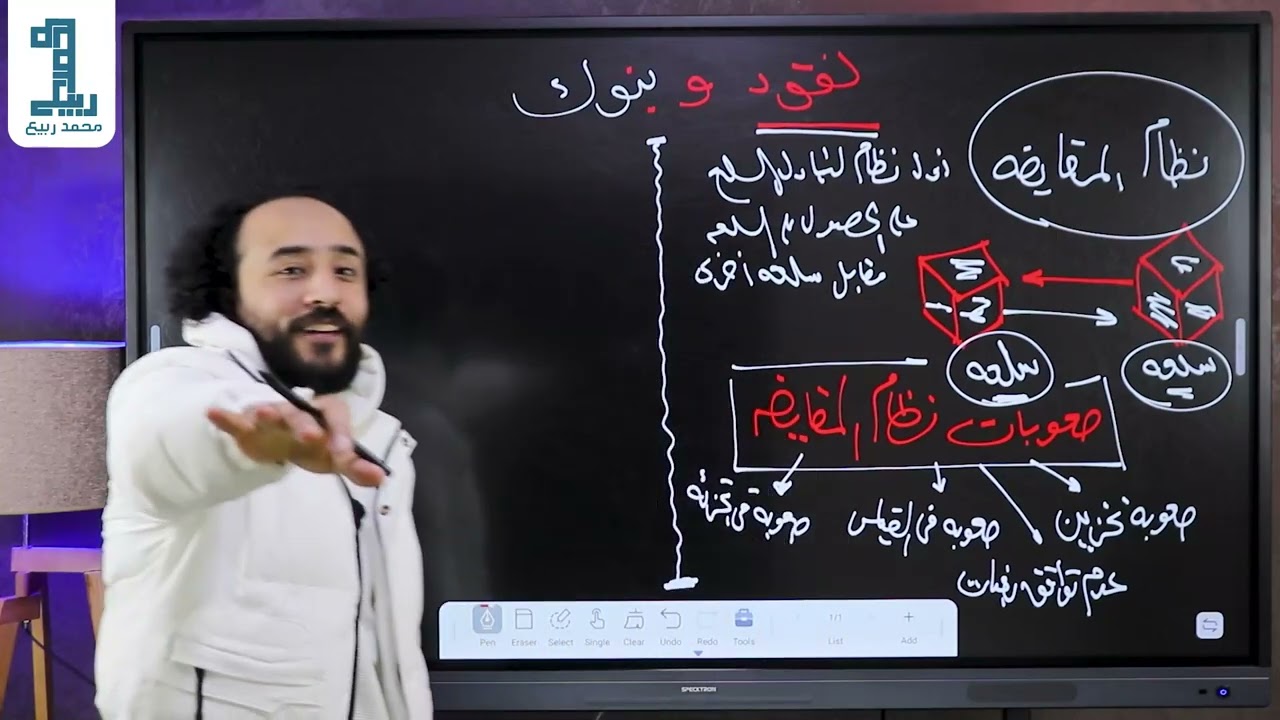 محمد ربيع
نقود و بنوك
نظام المقايضه
اول نظام لتبادل السلع
علي الحصول علي السلعه
مقابل سلعه اخرى
سلعه
سلعه
صعوبات نظام المقايضه
صعوبه تخزين
عدم توافق رغبات
صعوبه في القياس
صعوبة في تجزئة
Pen
Eraser
Select
Single
Clear
Undo
Redo
Tools
1/1
List
Add
SPECKTRON